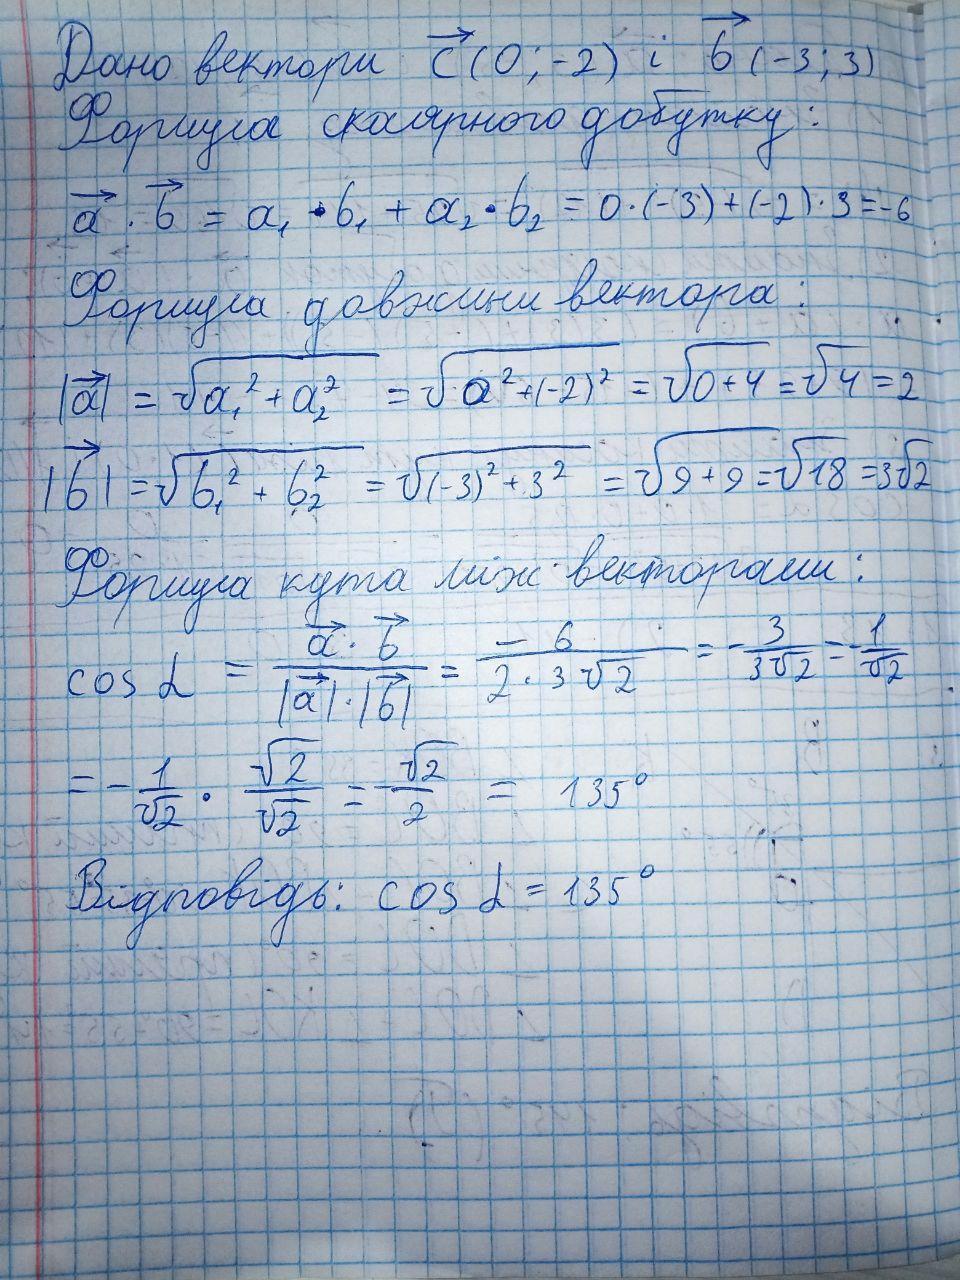 Дано вектори c⃗(0;-2) і b⃗(-3;3)
Формула скалярного добутку:
a⃗·b⃗ = a₁·b₁ + a₂·b₂ = 0·(-3)+(-2)·3=-6
Формула довжини вектора:
|a⃗| = √(a₁²+a₂²) = √(0²+(-2)²) = √(0+4) = √4 = 2
|b⃗| = √(b₁²+b₂²) = √((-3)²+3²) = √(9+9) = √18 = 3√2
Формула кута між векторами:
cos α = (a⃗·b⃗)/(|a⃗|·|b⃗|) = -6/(2·3√2) = -3/(3√2) = -1/√2
= -1/√2 · √2/√2 = -√2/2 = 135°
Відповідь: cos α = 135°